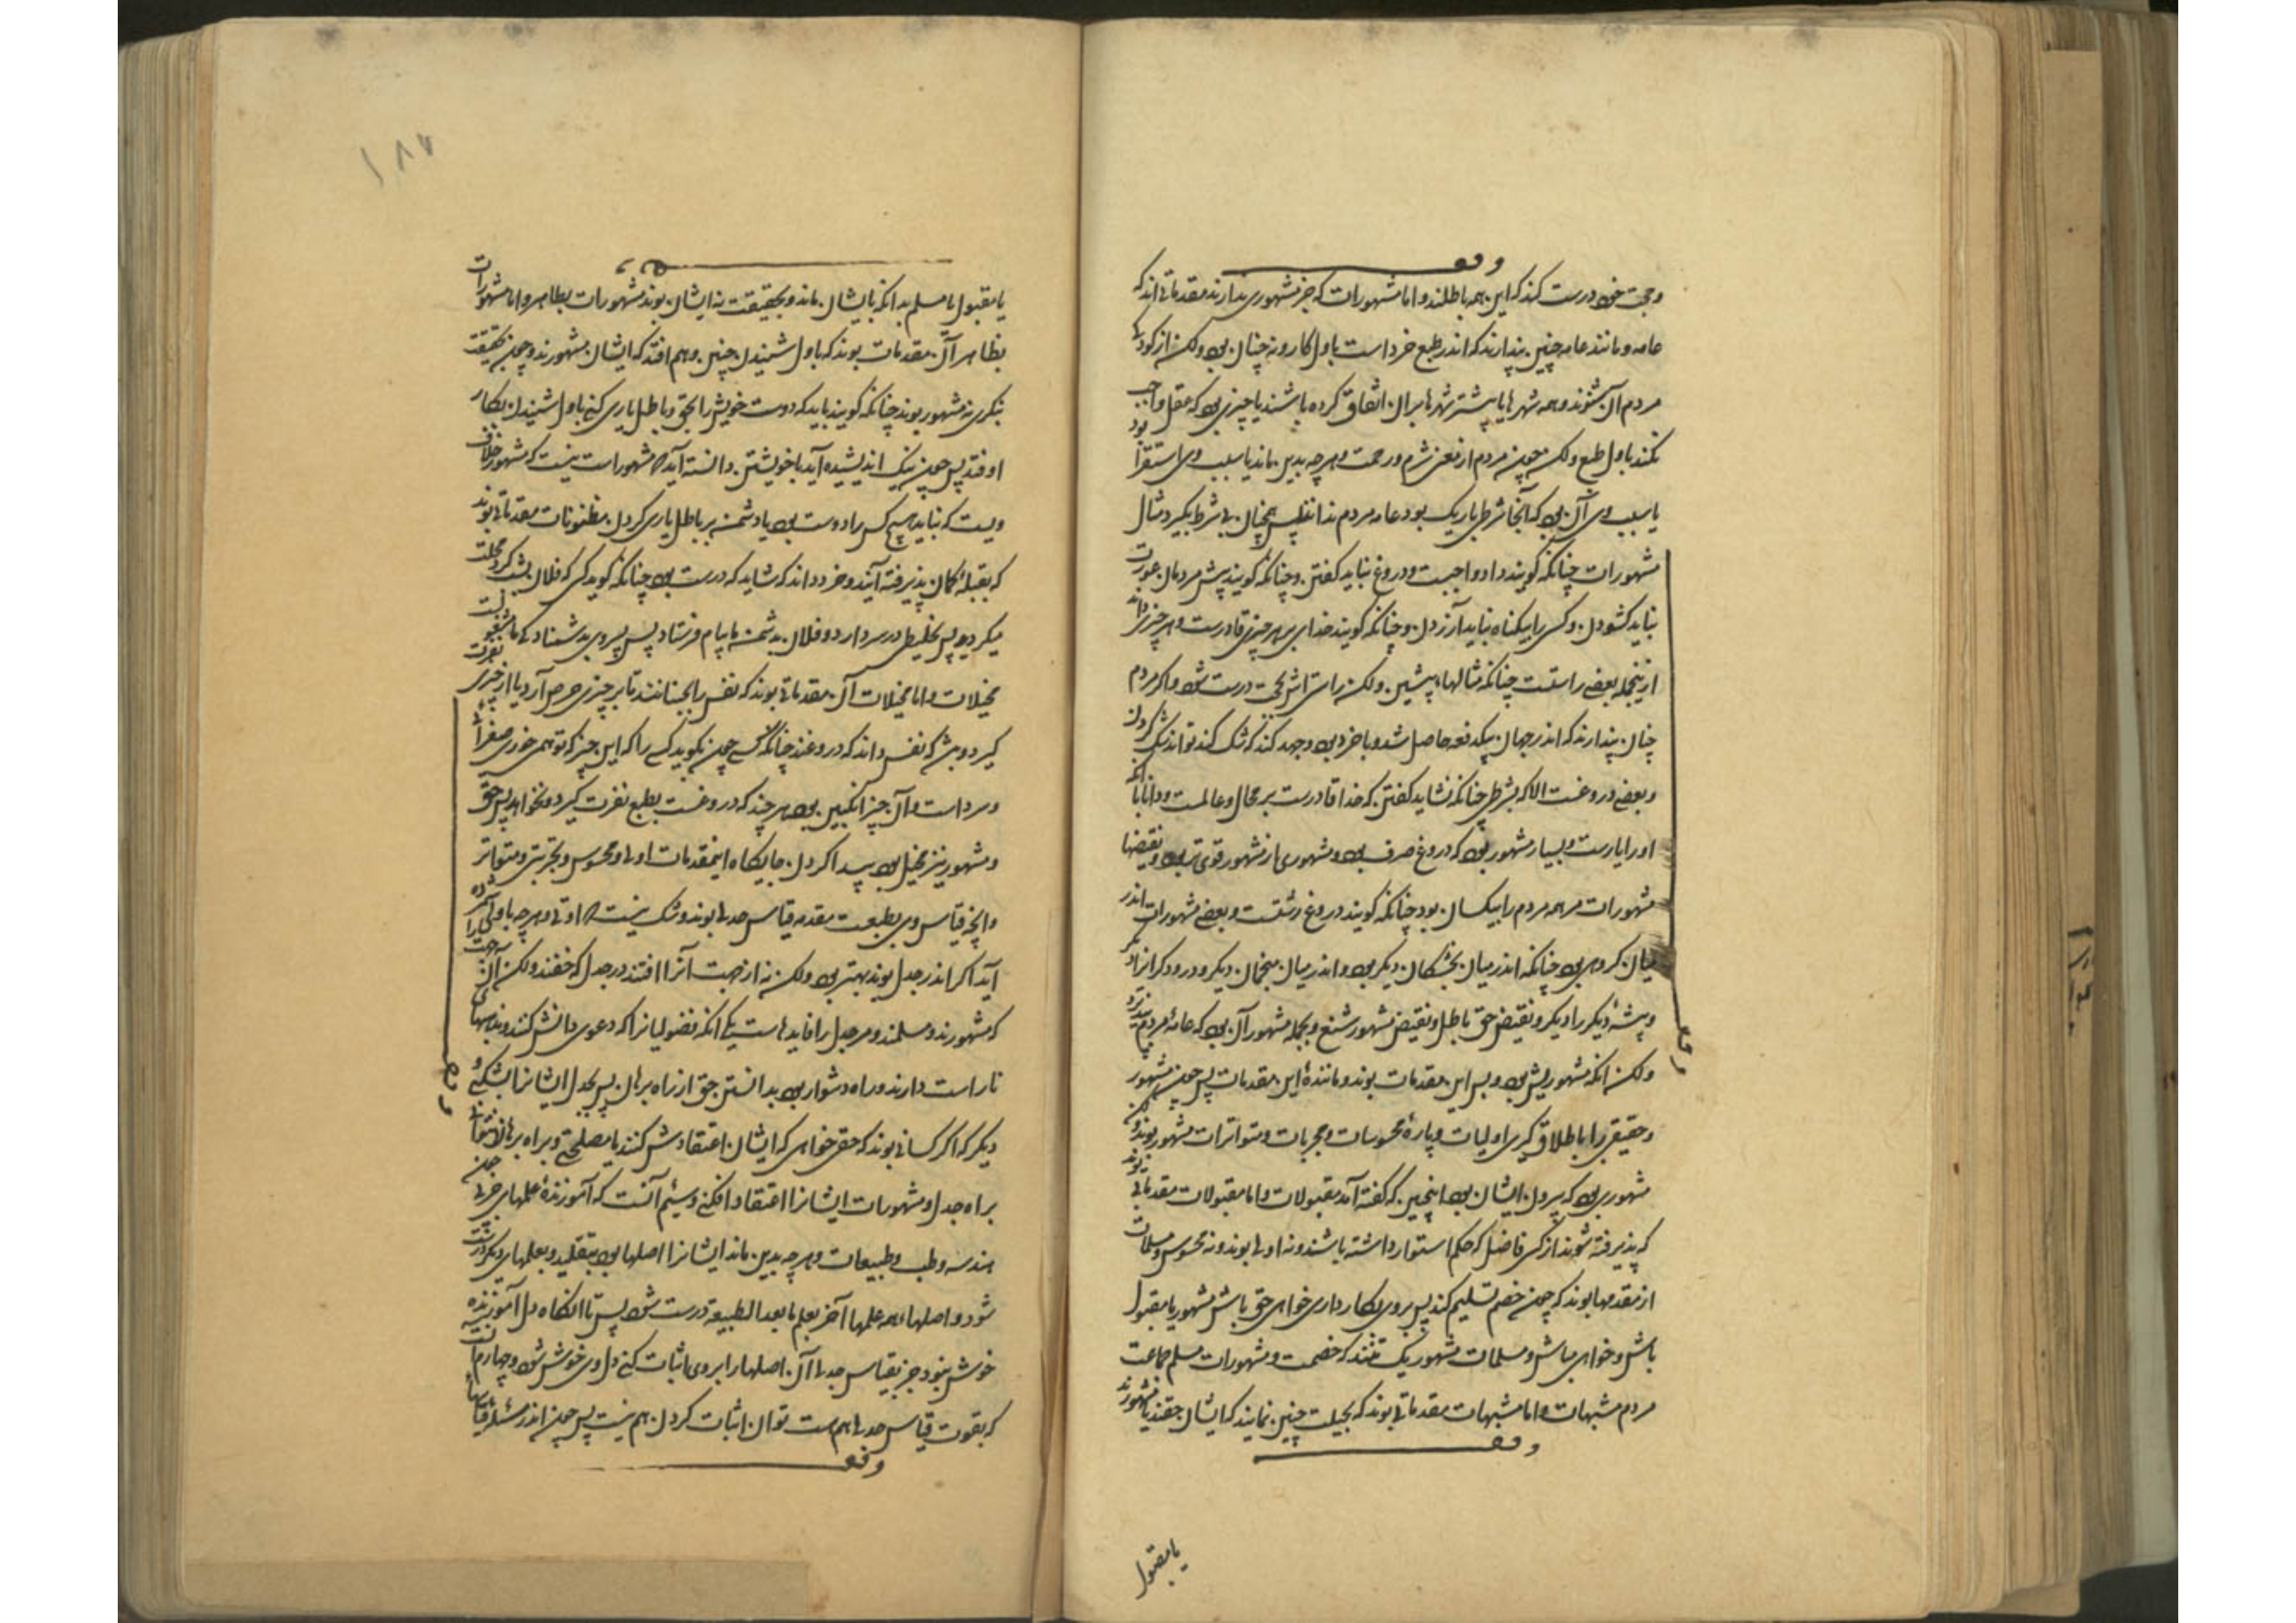 وقف
وحجت خرد درست کند که این همه باطلند و اما مشهورات که جز مشهوری ندارند مقدماتی اند که
عامه و مانند عامه چنین پندارند که اندر طبع خرد است باول کار و نه چنان بود ولکن از کودکی
مردم آن شنوند و همه شهرها یا بیشتر شهرها بران اتفاق کرده باشند یا چیزی بود که عقل واجب
نکند باول طبع ولکن چون مردم از معنی شرم و رحمت و هرچه بدین ماند یا سبب وی استقرا بود
یا سبب وی آن بود که آنجا شرطی باریک بود و عامه مردم ندانند پس همچنان بی شرط بگیرد مثال
مشهورات چنانکه گویند داد واجبست و دروغ نباید گفتن و چنانکه گویند پیش مردمان عورت
نباید گشودن و کس را بیگناه نباید آزردن و چنانکه گویند خدای بر هر چیزی قادرست و هر چیزی داند
ازینجمله بعضی راستست چنانکه مثالهاء پیشین ولکن راستی اش بحجت درست شود و اگر مردم
چنان پندارند که اندر جهان بیکدفعه حاصل شد و با خرد بود و جهد کند که شک کند تواند شک کردن
و بعضی دروغست الا که بشرطی چنانکه نشاید گفتن که خدا قادرست بر محال و عالمست و دانا بآنکه
او را یارست و بسیار مشهور بود که دروغ صرف بود و مشهوری از مشهور قوی تر بود و بعضی
مشهورات مر همه مردم را یکسان بود چنانکه گویند دروغ زشتست و بعضی مشهورات اندر
میان گروهی بود چنانکه اندر میان بجشکان دیگر بود و اندر میان منجمان دیگر و درودگرانرا دیگر
و پیشهٔ دیگر را دیگر و نقیض حق باطل و نقیض مشهور شنیع و بجمله مشهور آن بود که عامهٔ مردم پذیرد
ولکن انکه مشهوریش بود و بس این مقدمات بوند و مانندهٔ این مقدمات پس چون مشهور
و حقیقی را باطلاق گیری اولیات و پارهٔ محسوسات و مجربات و متواترات مشهور بوند
مشهوری بود که بیرون ایشان بود اینچنین که گفته آمد مقبولات و اما مقبولات مقدماتی بوند
که پذیرفته شوند از کس فاضل که حکیم استوار داشته باشند و نه اولی بوند و نه محسوس و مسلمات
از مقدمها بوند که چون خصم تسلیم کند پس بر وی بکار داری خواهی حق باش مشهور یا مقبول
باش و خواهی مباش و مسلمات مشهور یک تنند که خصمست و مشهورات مسلم جماعت
مردم مشبهات و اما مشبهات مقدماتی بوند که بحیلت چنین نمایند که ایشان حقند یا مشهورند
وقف
وقف
یا مقبول
۱۸۷
یا مقبول یا مسلم بدانکه بایشان مانند و بحقیقت نه ایشان بوند مشهورات بظاهر و اما مشهورات
بظاهر آن مقدمات بوند که باول شنیدن چنین وهم افتد که ایشان مشهورند و چون بحقیقت
بنگری نه مشهور بوند چنانکه گویند باید که دوست خویش را بحق و باطل یاری کنی باول شنیدن بکار
اوفتد پس چون نیک اندیشیده آید با خویشتن دانسته آید که مشهور است نیست که مشهور خلاف
ویست که نباید هیچ کس را دوست بود یا دشمن بر باطل یاری کردن مظنونات مقدماتی بوند
که بغلبهٔ گمان پذیرفته آیند و خرد داند که شاید که درست نبود چنانکه گوید کس که فلان بشب گرد محلت
میگردید پس تخلیطی در سر دارد و فلان بدشمن ما پیام فرستاد پس وی بدشمنادگی ما مشغولست
مخیلات و اما مخیلات آن مقدماتی بوند که نفس را بجنبانند تا بر چیزی حرص آرد یا از چیزی نفرت
گیرد و بشر که نفس داند که دروغند چنانکه کسی چون بگوید کسی را که این چیز که تو همی خوری صفرا
ور داست و آن چیز انگبین بود هرچند که دروغست بطبع نفرت گیرد و نخواهد پس حق
و مشهور نیز مخیل بود پیدا کردن جایگاه اینمقدمات اولی و محسوس و تجربتی و متواتر
و انچه قیاس وی بطبعست مقدمه قیاس جدلی بوند و شک نیست که اولی و هرچه با وی شمرده
آید اگر اندر جدل بوند بهتر بود ولکن نه از جهت آنرا افتند در جدل که حقند ولکن از آن جهت
که مشهورند و مسلمند و مر جدل را فایدهاست یکی انکه فضولیانرا که دعوی دانش کنند و مذهبهای
ناراست دارند و راه دشوار بود بدانستن حق از راه برهان پس بجدل ایشانرا بشکنی و
دیگر که اگر کسانی بوند که حقی خواهی که ایشان اعتقادش کنند یا مصلحتی و براه برهان نتوانی
براه جدل و مشهورات ایشانرا اعتقاد افکنی و سیم آنست که آموزندهٔ علمهای جزئی چون
هندسه و طب و طبیعیات و هرچه بدین ماند ایشانرا اصلها بود بتقلید و بعلمهای دیگر درست
شود و اصلهاء همه علمها آخر بعلم مابعد الطبیعة درست شود پس تا انگاه دل آموزنده
خوش نبود و چو بقیاس جدلی آن اصلها را بر وی اثبات کنی دل وی خوش شود و چهارم آنست
که بقوت قیاس جدلی هم هست توان اثبات کردن هم نیست پس چون اندر مسئله قیاسهای
وقف
وقف